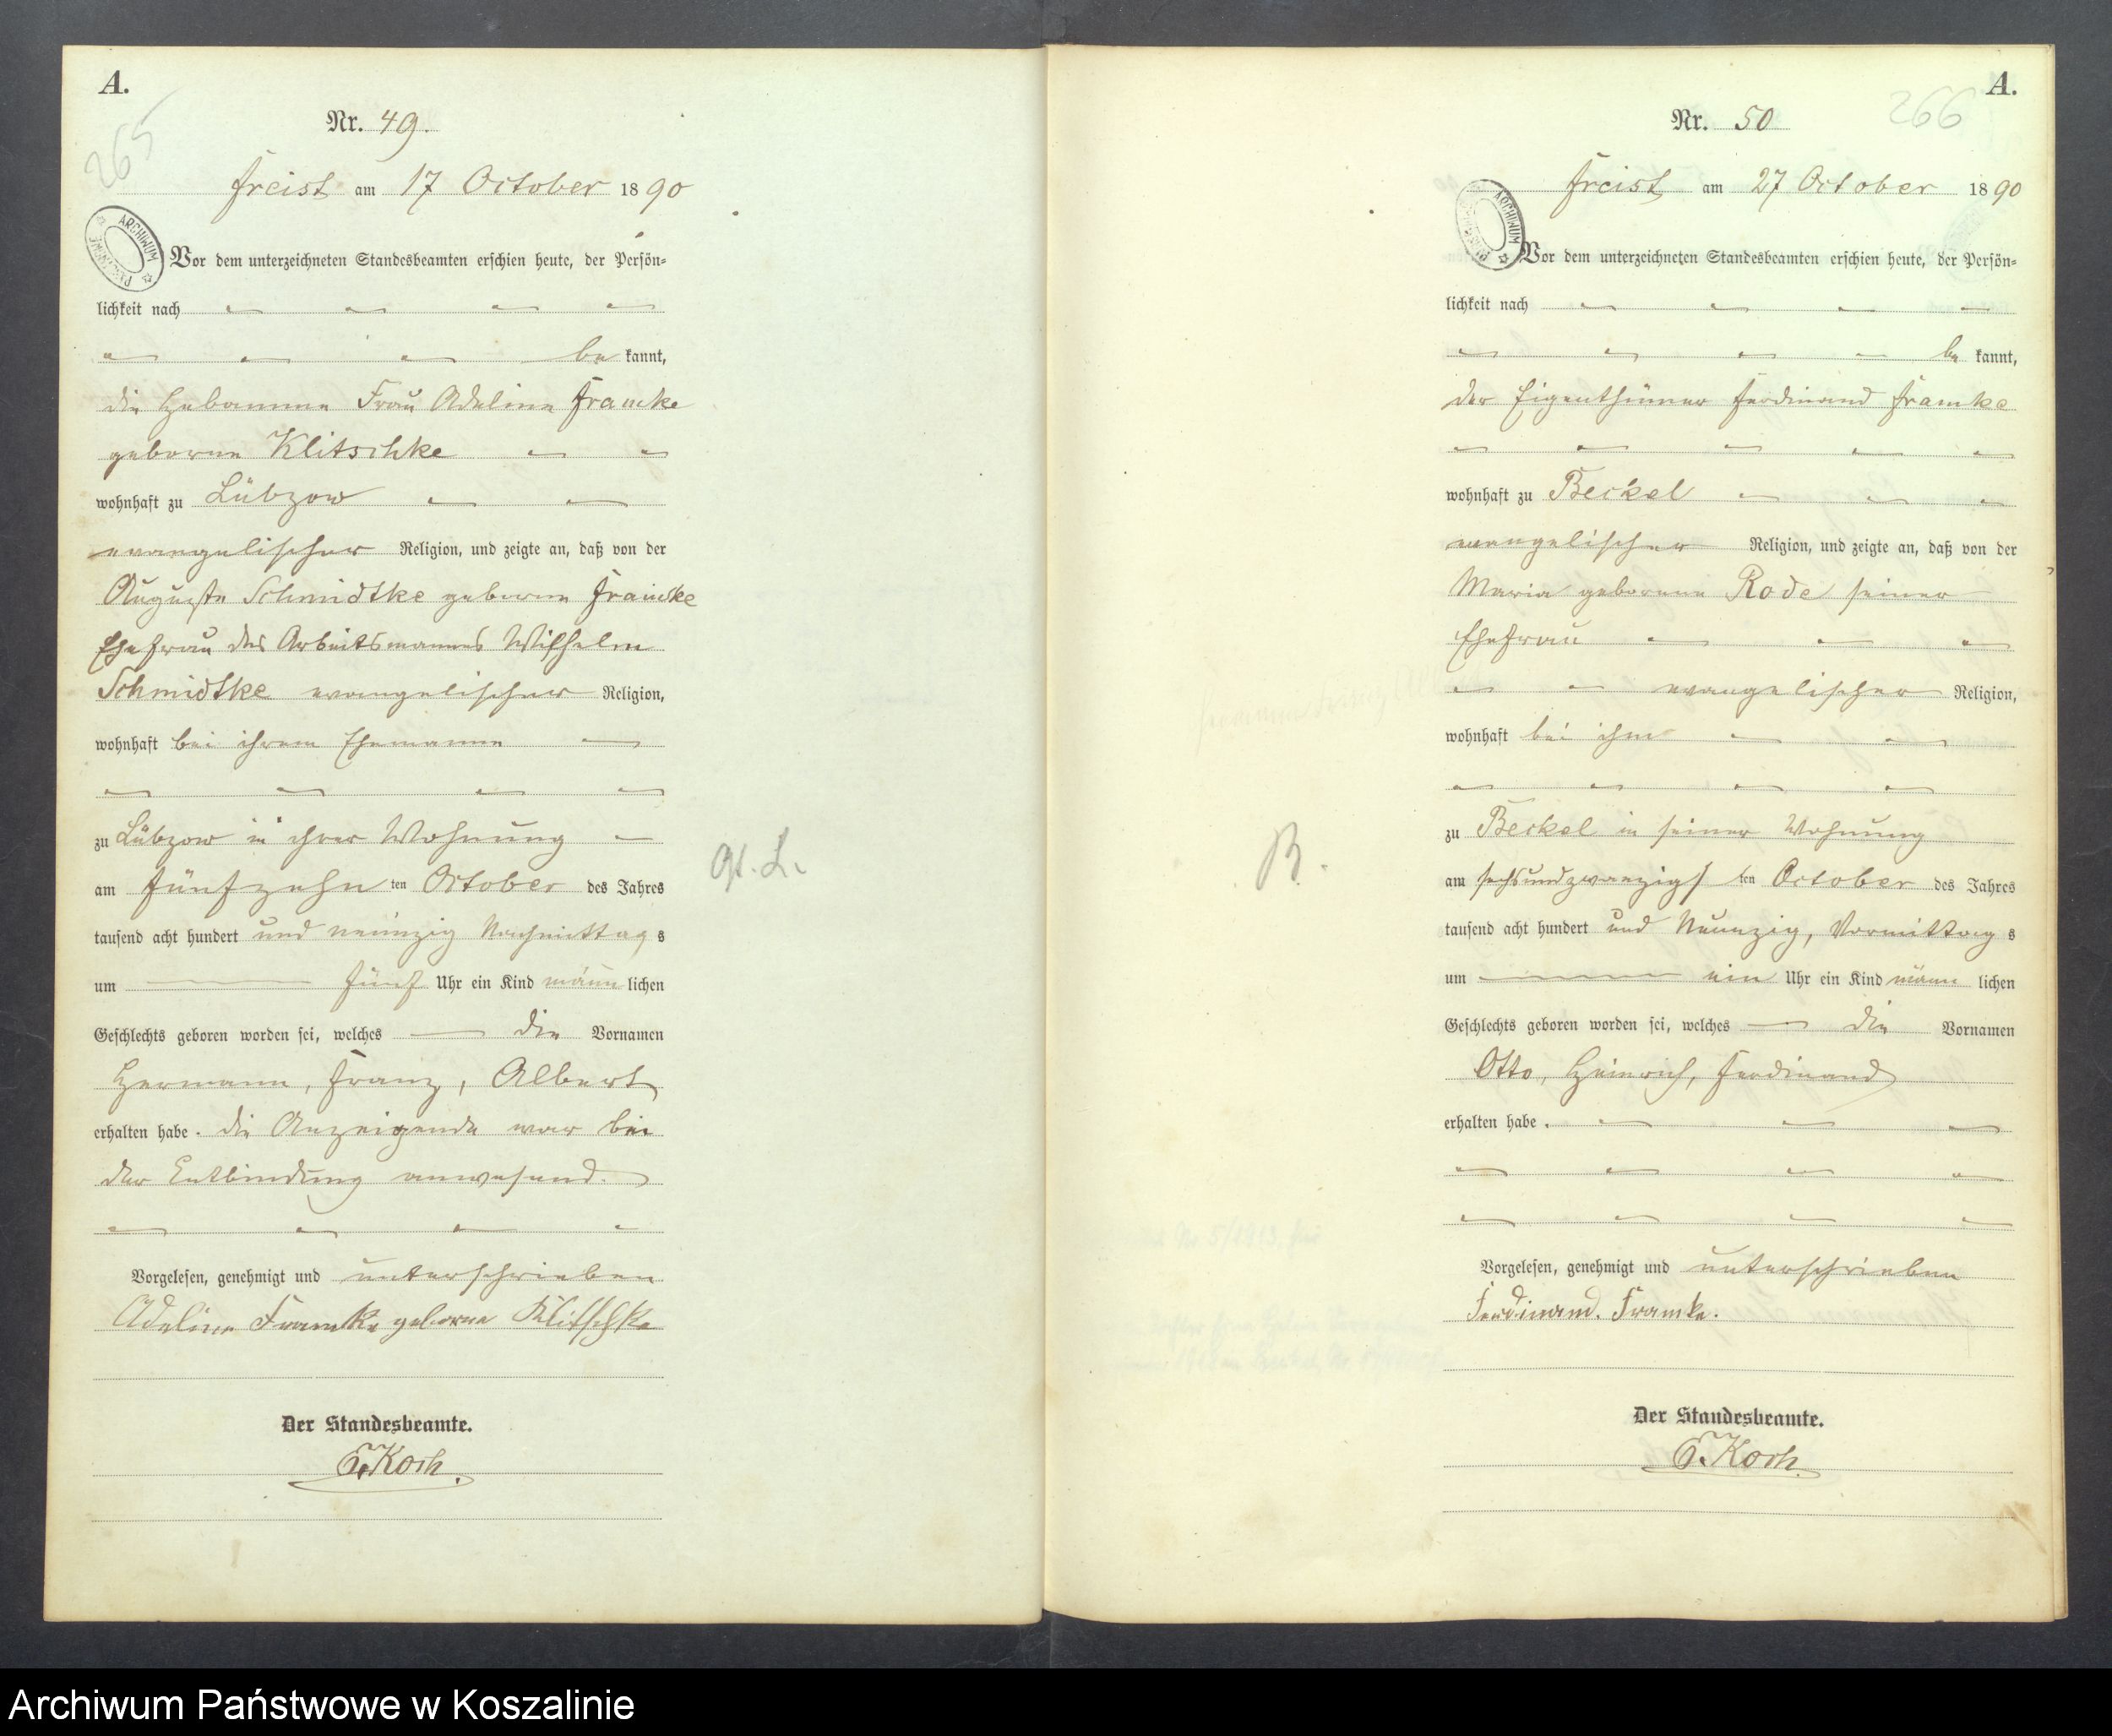 A.
265
Nr. 49.
Freist am 17 October 1890
ARCHIWUM
Vor dem unterzeichneten Standesbeamten erschien heute, der Persön-
lichkeit nach
be kannt,
die Hebamme Frau Adeline Framke
geborne Klitschke
wohnhaft zu Lübzow
evangelischer Religion, und zeigte an, daß von der
Auguste Schmidtke geborne Framke
Ehefrau des Arbeitsmannes Wilhelm
Schmidtke evangelischer Religion,
wohnhaft bei ihrem Ehemanne
zu Lübzow in ihrer Wohnung
am fünfzehn ten October des Jahres
tausend acht hundert und neunzig Nachmittag s
um fünf Uhr ein Kind männ lichen
Geschlechts geboren worden sei, welches die Vornamen
Hermann, Franz, Albert
erhalten habe. die Anzeigende war bei
der Entbindung anwesend.
Vorgelesen, genehmigt und unterschrieben
Adeline Framke geborne Klitschke
Der Standesbeamte.
Koch.
A.
266
Nr. 50
Freist am 27 October 1890
ARCHIWUM
Vor dem unterzeichneten Standesbeamten erschien heute, der Persön-
lichkeit nach
be kannt,
der Eigenthümer Ferdinand Framke
wohnhaft zu Beckel
evangelischer Religion, und zeigte an, daß von der
Maria geborene Rode seiner
Ehefrau
evangelischer Religion,
wohnhaft bei ihm
zu Beckel in seiner Wohnung
B.
am sechsundzwanzigs ten October des Jahres
tausend acht hundert und Neunzig, Vormittag s
um ein Uhr ein Kind männ lichen
Geschlechts geboren worden sei, welches die Vornamen
Otto, Heinrich, Ferdinand
erhalten habe.
Vorgelesen, genehmigt und unterschrieben
Ferdinand. Framke.
Der Standesbeamte.
Koch.
Archiwum Państwowe w Koszalinie